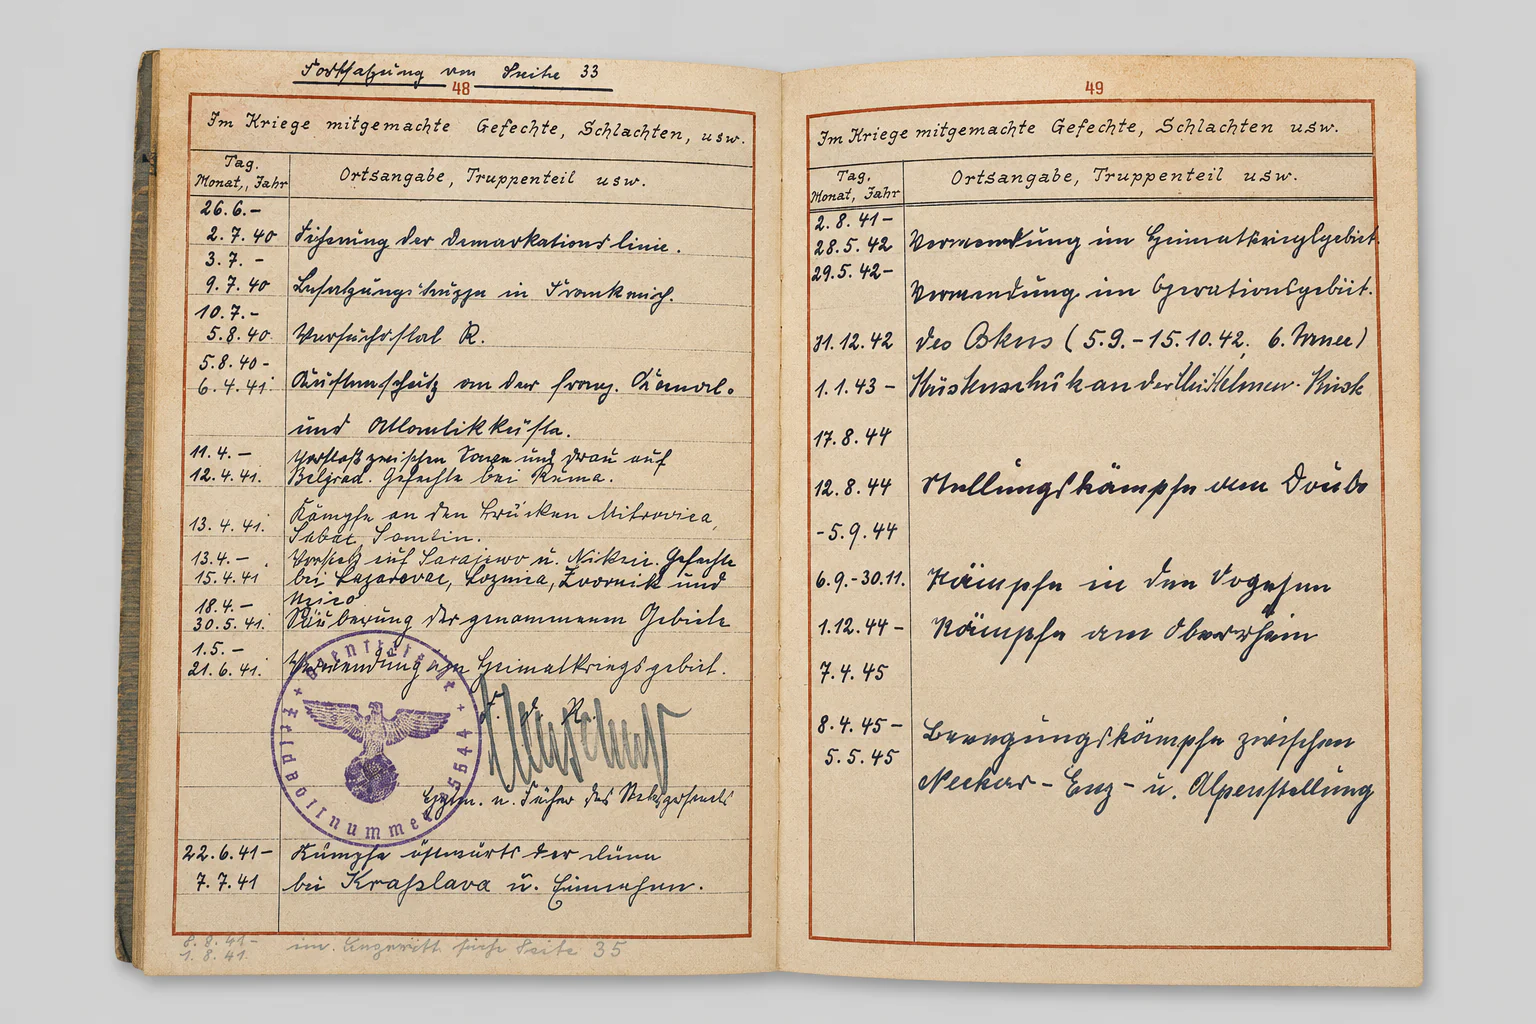 Fortsetzung von Seite 33
48
Im Kriege mitgemachte Gefechte, Schlachten, usw.
Tag, Monat,, Jahr
Ortsangabe, Truppenteil usw.
26.6.–
2.7.40 Sicherung der Demarkationslinie.
3.7. –
9.7.40 Besatzungstruppe in Frankreich.
10.7.–
5.8.40 Versuchsstab R.
5.8.40–
6.4.41. Küstenschutz an der franz. Kanal-
und Atlantikküste.
11.4.– Vorstoß zwischen Save und Drau auf
12.4.41. Belgrad. Gefechte bei Ruma.
13.4.41. Kämpfe an den Brücken Mitrovica,
Sabac, Semlin.
13.4.– Vorstoß auf Sarajewo u. Gefechte
15.4.41 bei Lazarevac, Loznica, Zvornik und
18.4.–
30.5.41. Säuberung der genommenen Gebiete
1.5.–
21.6.41. Verwendung im Heimatkriegsgebiet.
F. d. R.
Feldpostnummer 25544
u. Führer des
22.6.41– Kämpfe ostwärts der Düna
7.7.41 bei Kraßlava u.
8.8.41–
1.8.41. im siehe Seite 35
49
Im Kriege mitgemachte Gefechte, Schlachten usw.
Tag, Monat, Jahr
Ortsangabe, Truppenteil usw.
2.8.41–
28.5.42 Verwendung im Heimatkriegsgebiet.
29.5.42–
Verwendung im Operationsgebiet.
31.12.42 des Ostens (5.9.–15.10.42, 6. Armee)
1.1.43– Küstenschutz an der Mittelmeer-Küste
17.8.44
12.8.44 Stellungskämpfe am Doubs
-5.9.44
6.9.–30.11. Kämpfe in den Vogesen
1.12.44– Kämpfe am Oberrhein
7.4.45
8.4.45– Bewegungskämpfe zwischen
5.5.45
Neckar – Enz – u. Alpenstellung